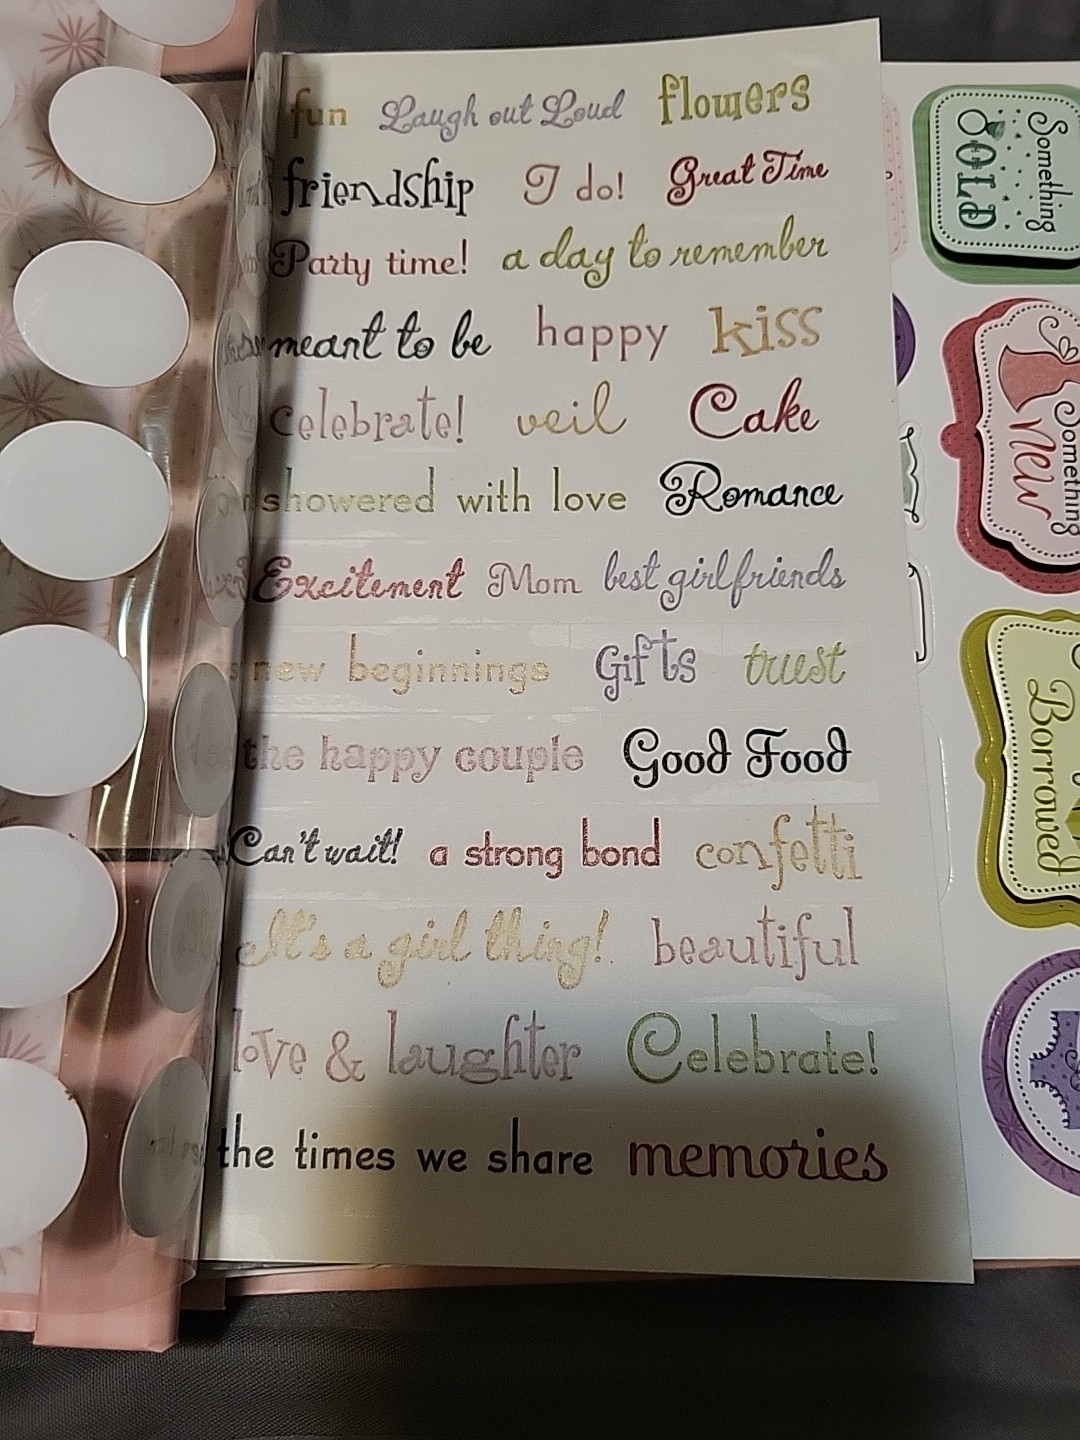 fun Laugh out Loud flowers
friendship I do! Great Time
Party time! a day to remember
meant to be happy kiss
celebrate! veil Cake
showered with love Romance
Excitement Mom best girlfriends
new beginnings Gifts trust
the happy couple Good Food
Can't wait! a strong bond confetti
It's a girl thing! beautiful
love & laughter Celebrate!
the times we share memories
Something
OLD
Something
New
Borrowed